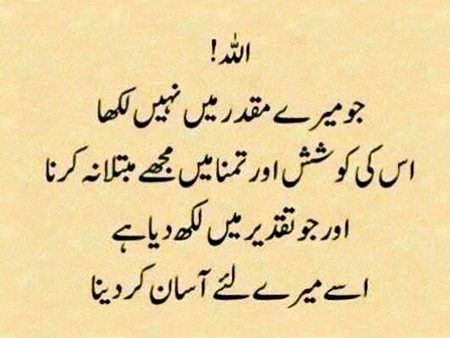 اللہ!
جو میرے مقدر میں نہیں لکھا
اس کی کوشش اور تمنا میں مجھے مبتلا نہ کرنا
اور جو تقدیر میں لکھ دیا ہے
اسے میرے لئے آسان کر دینا